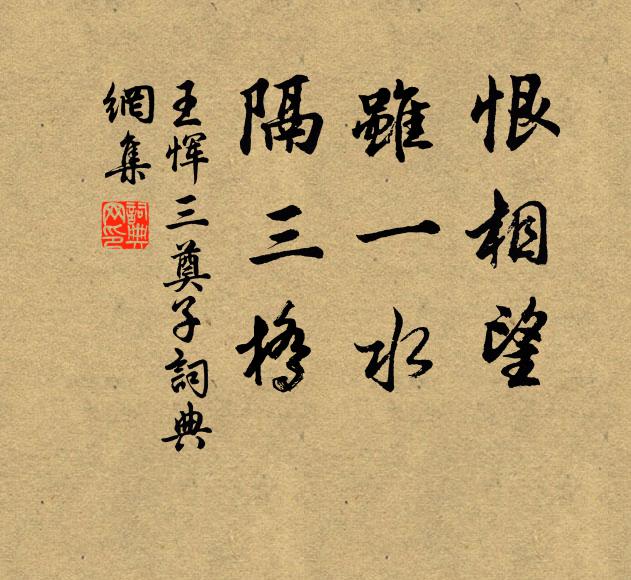 恨相望
雖一水
隔三橋
王惲三奠子詞典
網集
詞典
网印